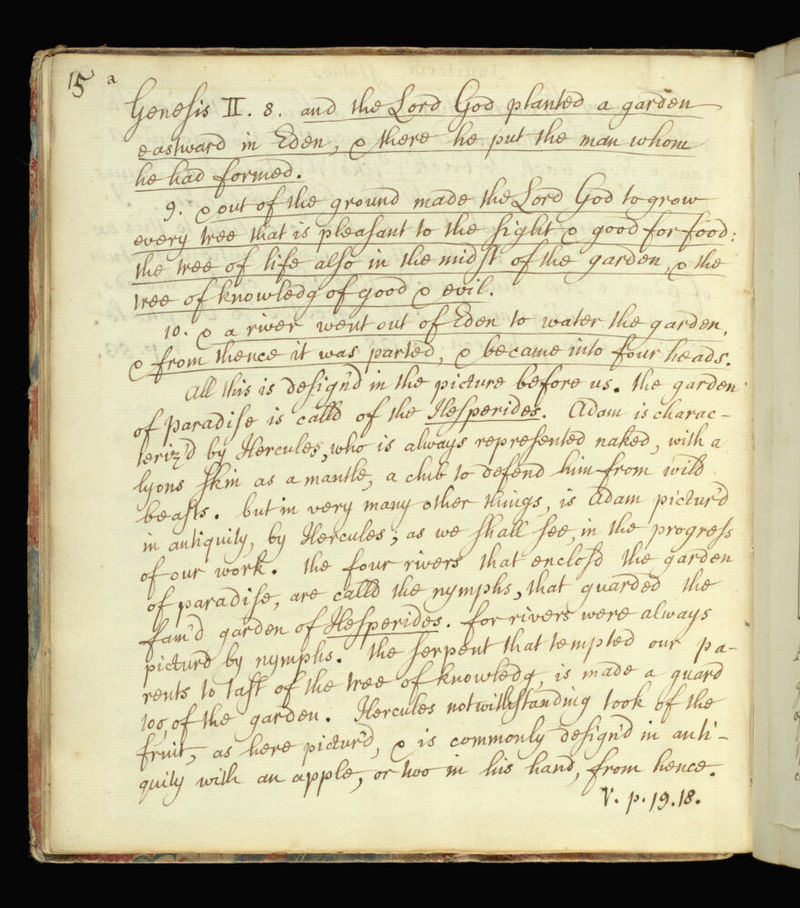 15 a
Genesis II. 8. and the Lord God planted a garden
eastward in Eden, & there he put the man whom
he had formed.
9. & out of the ground made the Lord God to grow
every tree that is pleasant to the sight & good for food:
the tree of life also in the midst of the garden, & the
tree of knowledg of good & evil.
10. & a river went out of Eden to water the garden,
& from thence it was parted, & became into four heads.
All this is design'd in the picture before us. the garden
of paradise is calld of the Hesperides. Adam is charac-
teriz'd by Hercules, who is always represented naked, with a
lyons skin as a mantle, a club to defend him from wild
beasts. but in very many other things, is Adam pictur'd
in antiquity, by Hercules; as we shall see, in the progress
of our work. the four rivers that enclosd the garden
of paradise, are calld the nymphs, that guarded the
fam'd garden of Hesperides. for rivers were always
picturd by nymphs. the serpent that tempted our pa-
rents to tast of the tree of knowledg, is made a guard
too, of the garden. Hercules notwithstanding took of the
fruit, as here pictur'd, & is commonly design'd in anti-
quity with an apple, or two in his hand, from hence.
V. p. 19. 18.